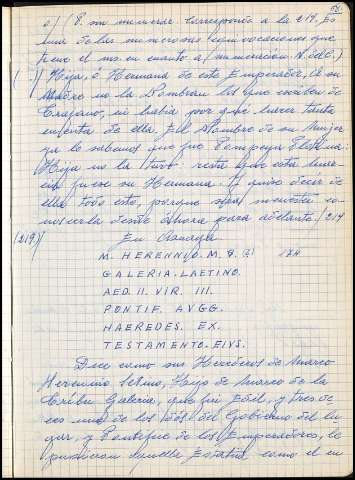 o/ (P. sin numerar. Corresponde a la 217. Es
una de las numerosas equivocaciones que
tiene el ms. en cuanto a numeración. N. del C.)
(...)/ Hija, o Hermana de este Emperador, (a su
Madre no la Nombran los que escriben de
Trajano, ni había por qué hacer tanta
cuenta de ella. El Nombre de su Mujer
ya lo sabemos que fue Pompeya Plotina:
Hija no la tuvo: resta que esta Mar-
cia fuese su Hermana. Y quise decir de
ella todo esto, porque será menester co-
nocerla desde ahora para adelante. (217
(219)/ En Azuaga
M. HERENNIO. M. F.
GALERIA. LAETINO.
AED. II. VIR. III.
PONTIF. AVGG.
HAEREDES. EX.
TESTAMENTO. EIVS.
Dice como sus Herederos de Marco
Herennio Letino, Hijo de Marco de la
Tribu Galeria, que fue Edil, y Tres ve-
ces uno de los dos del Gobierno del lu-
gar, y Pontífice de los Emperadores, le
pusieron aquella Estatua como él en